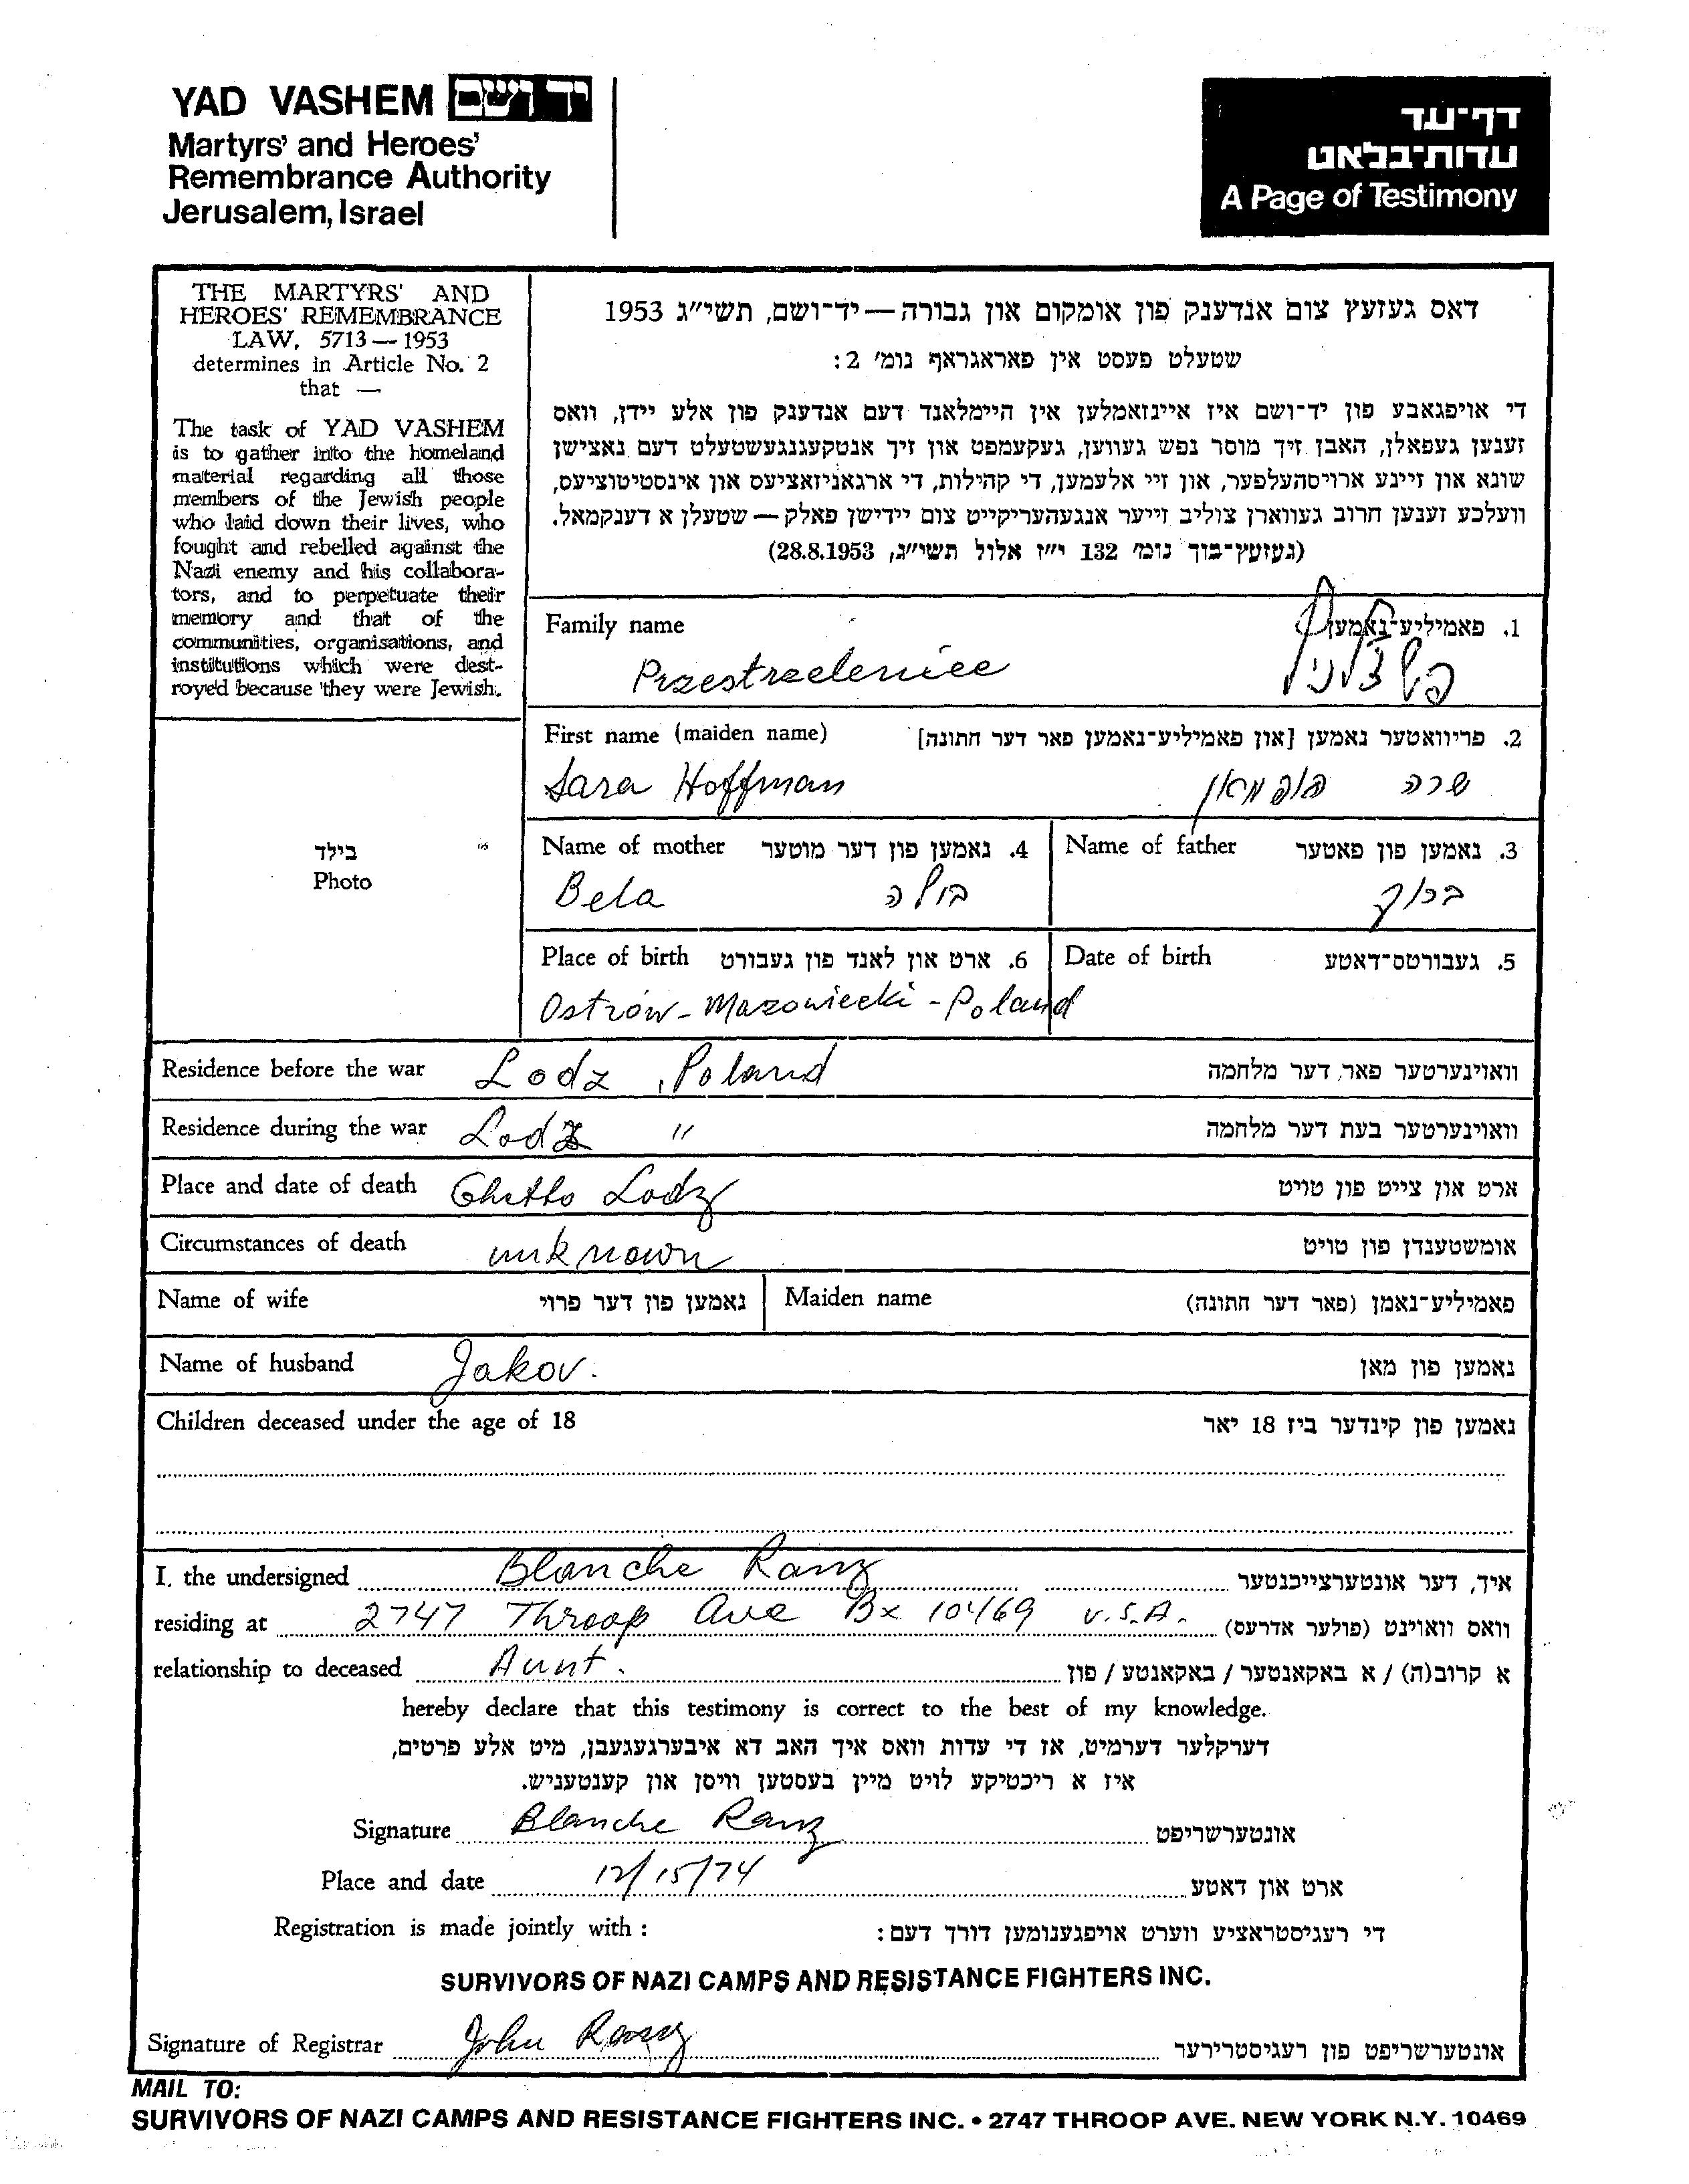 YAD VASHEM יד ושם
Martyrs' and Heroes'
Remembrance Authority
Jerusalem, Israel
דף־עד
עדות־בלאט
A Page of Testimony
THE MARTYRS' AND
HEROES' REMEMBRANCE
LAW, 5713 — 1953
determines in Article No. 2
that —
The task of YAD VASHEM
is to gather into the homeland
material regarding all those
members of the Jewish people
who laid down their lives, who
fought and rebelled against the
Nazi enemy and his collabora-
tors, and to perpetuate their
memory and that of the
communities, organisations, and
institutions which were dest-
royed because they were Jewish.
דאס געזעץ צום אנדענק פון אומקום און גבורה — יד־ושם, תשי״ג 1953
שטעלט פעסט אין פאראגראף נומ׳ 2:
די אויפגאבע פון יד־ושם איז איינזאמלען אין היימלאנד דעם אנדענק פון אלע יידן, וואס
זענען געפאלן, האבן זיך מוסר נפש געווען, געקעמפט און זיך אנטקעגנגעשטעלט דעם נאצישן
שונא און זיינע ארויסהעלפער, און זיי אלעמען, די קהילות, די ארגאניזאציעס און אינסטיטוציעס,
וועלכע זענען חרוב געווארן צוליב זייער אנגעהעריקייט צום יידישן פאלק — שטעלן א דענקמאל.
(געזעץ־בוך נומ׳ 132 י״ז אלול תשי״ג, 28.8.1953)
Family name 1. פאמיליע־נאמען
Przestrzeleniec
First name (maiden name) 2. פריוואטער נאמען [און פאמיליע־נאמען פאר דער חתונה]
Sara Hoffman שרה הופמאן
Photo בילד
Name of mother 4. נאמען פון דער מוטער Name of father 3. נאמען פון פאטער
Bela ברוך
Place of birth 6. ארט און לאנד פון געבורט Date of birth 5. געבורטס־דאטע
Ostrów - Mazowiecki - Poland
Residence before the war Lodz, Poland וואוינערטער פאר דער מלחמה
Residence during the war Lodz " וואוינערטער בעת דער מלחמה
Place and date of death Ghetto Lodz ארט און צייט פון טויט
Circumstances of death unknown אומשטענדן פון טויט
Name of wife נאמען פון דער פרוי Maiden name פאמיליע־נאמן (פאר דער חתונה)
Name of husband Jakov. נאמען פון מאן
Children deceased under the age of 18 נאמען פון קינדער ביז 18 יאר
I, the undersigned Blanche Ranz איך, דער אונטערצייכנטער
residing at 2747 Throop Ave Bx 10469 U.S.A. וואס וואוינט (פולער אדרעס)
relationship to deceased Aunt. א קרוב(ה) / א באקאנטער / באקאנטע / פון
hereby declare that this testimony is correct to the best of my knowledge.
דערקלער דערמיט, אז די עדות וואס איך האב דא איבערגעגעבן, מיט אלע פרטים,
איז א ריכטיקע לויט מיין בעסטען וויסן און קענטעניש.
Signature Blanche Ranz אונטערשריפט
Place and date 12/15/74 ארט און דאטע
Registration is made jointly with : די רעגיסטראציע ווערט אויפגענומען דורך דעם :
SURVIVORS OF NAZI CAMPS AND RESISTANCE FIGHTERS INC.
Signature of Registrar John Ranz אונטערשריפט פון רעגיסטרירער
MAIL TO:
SURVIVORS OF NAZI CAMPS AND RESISTANCE FIGHTERS INC. • 2747 THROOP AVE. NEW YORK N.Y. 10469